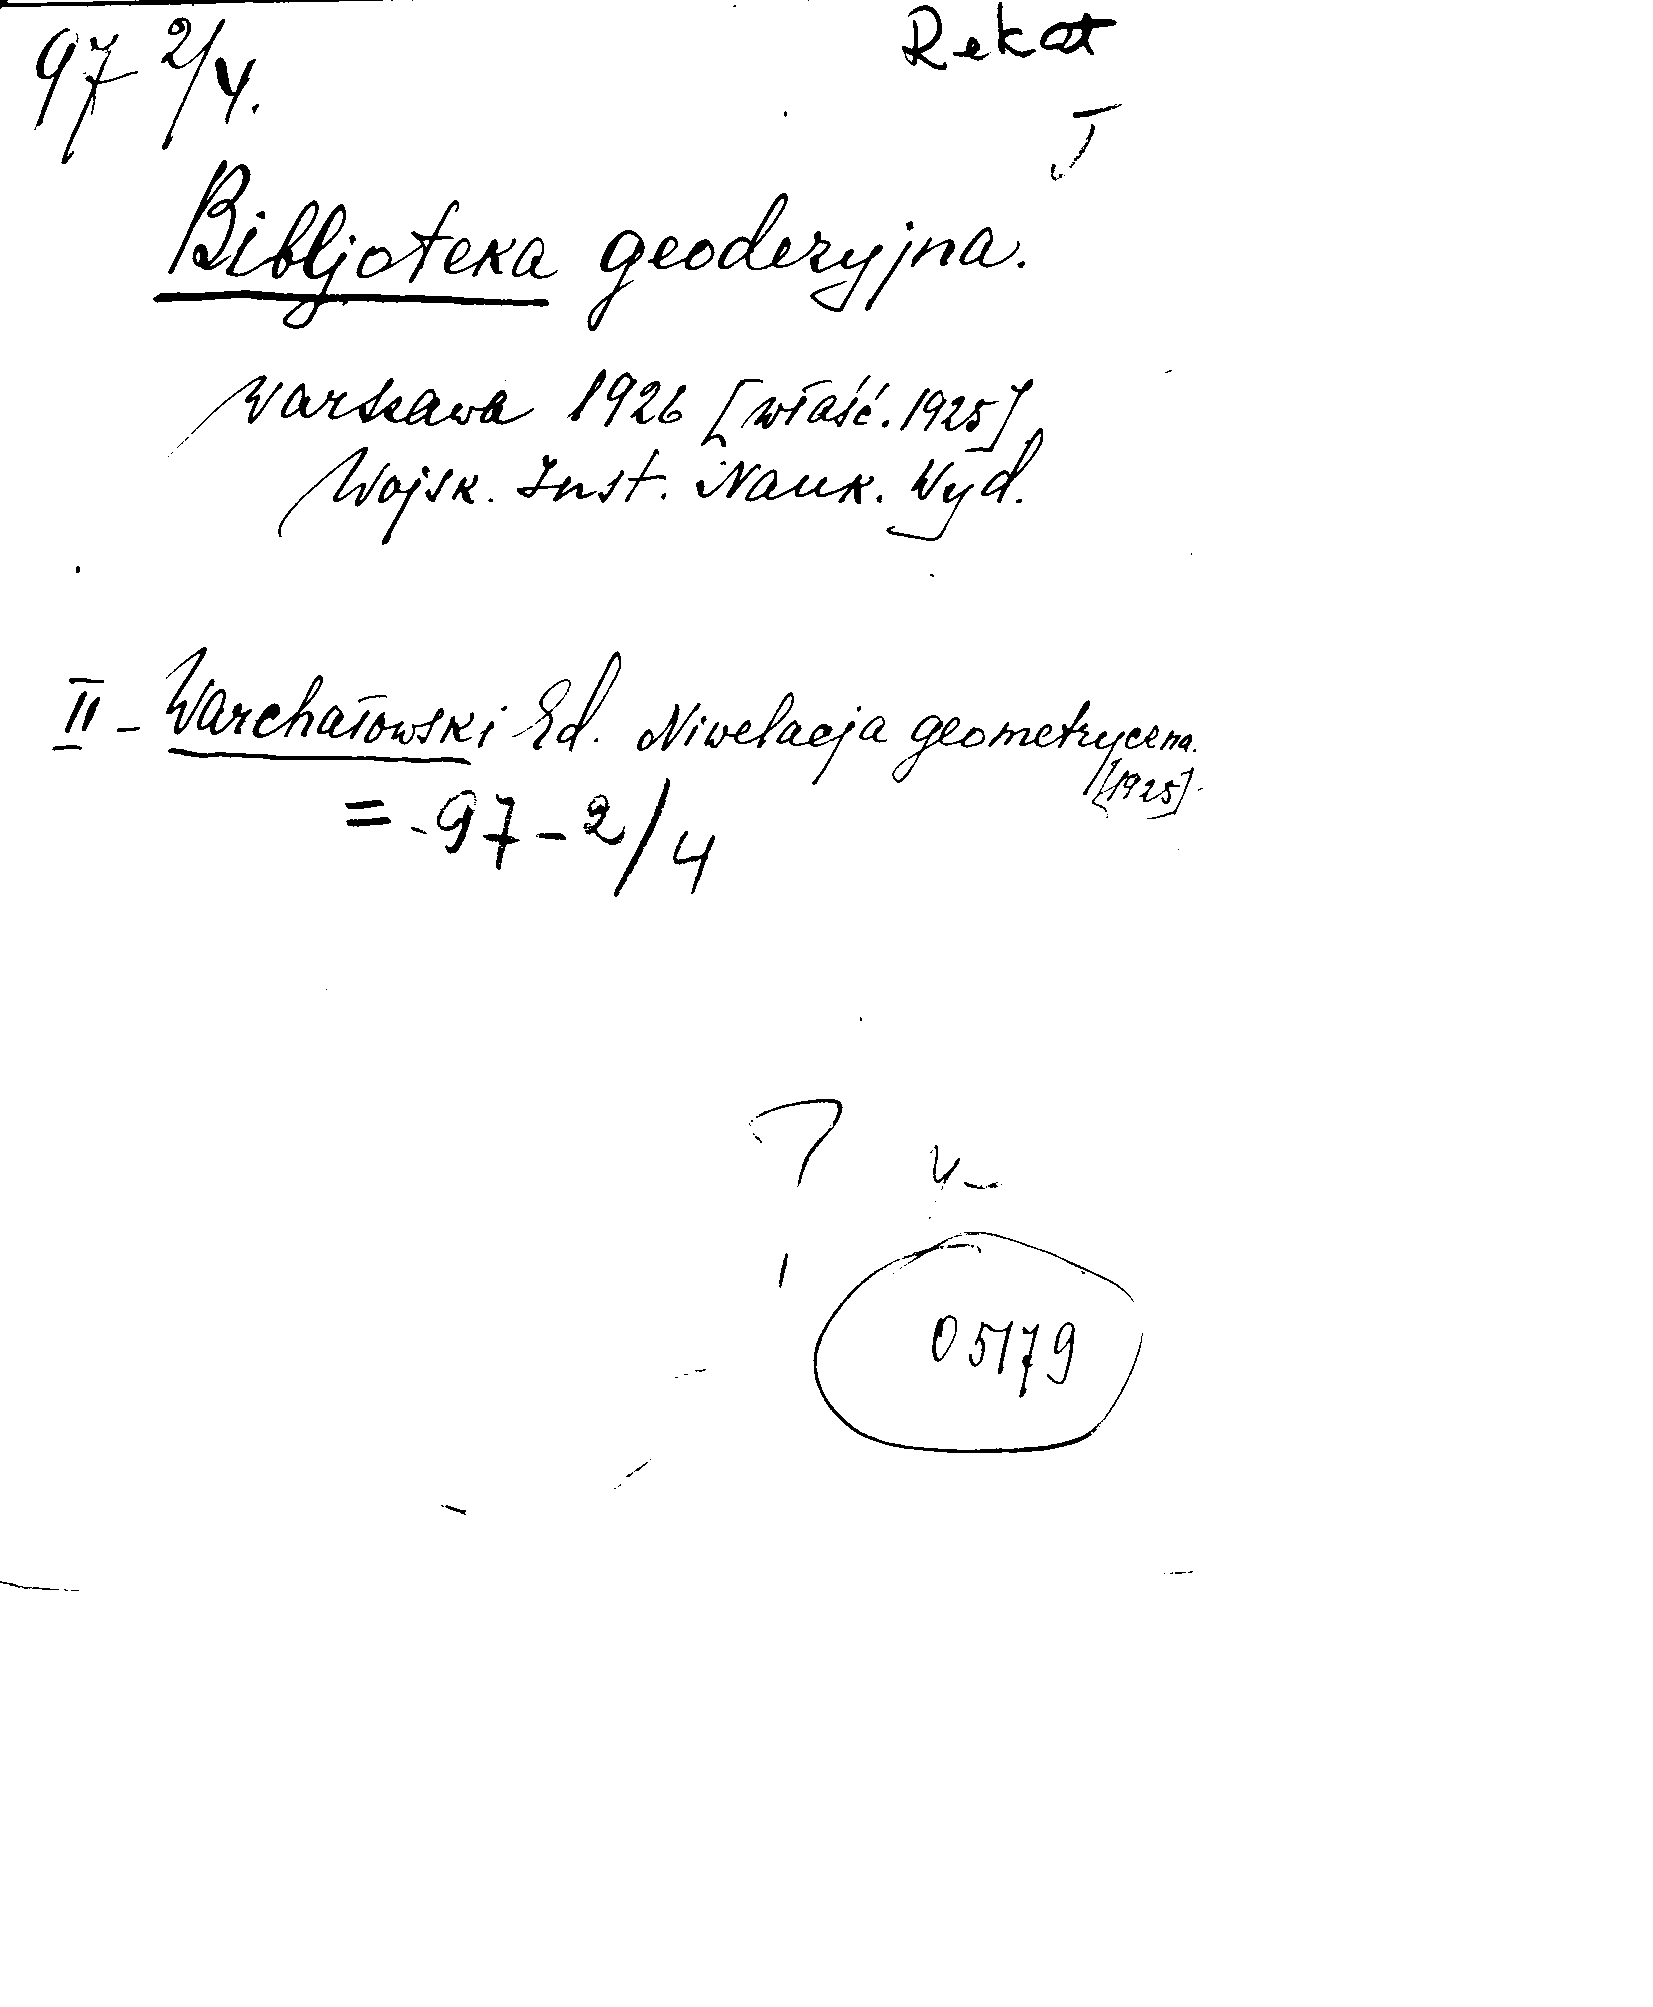 97 2/4. Rekat
J
Bibljoteka geodezyjna.
Warszawa 1926 [właść. 1925]
Wojsk. Inst. Nauk. Wyd.
II - Warchałowski Ed. Niwelacja geometryczna.
[1925].
= 97 - 2/4
05179